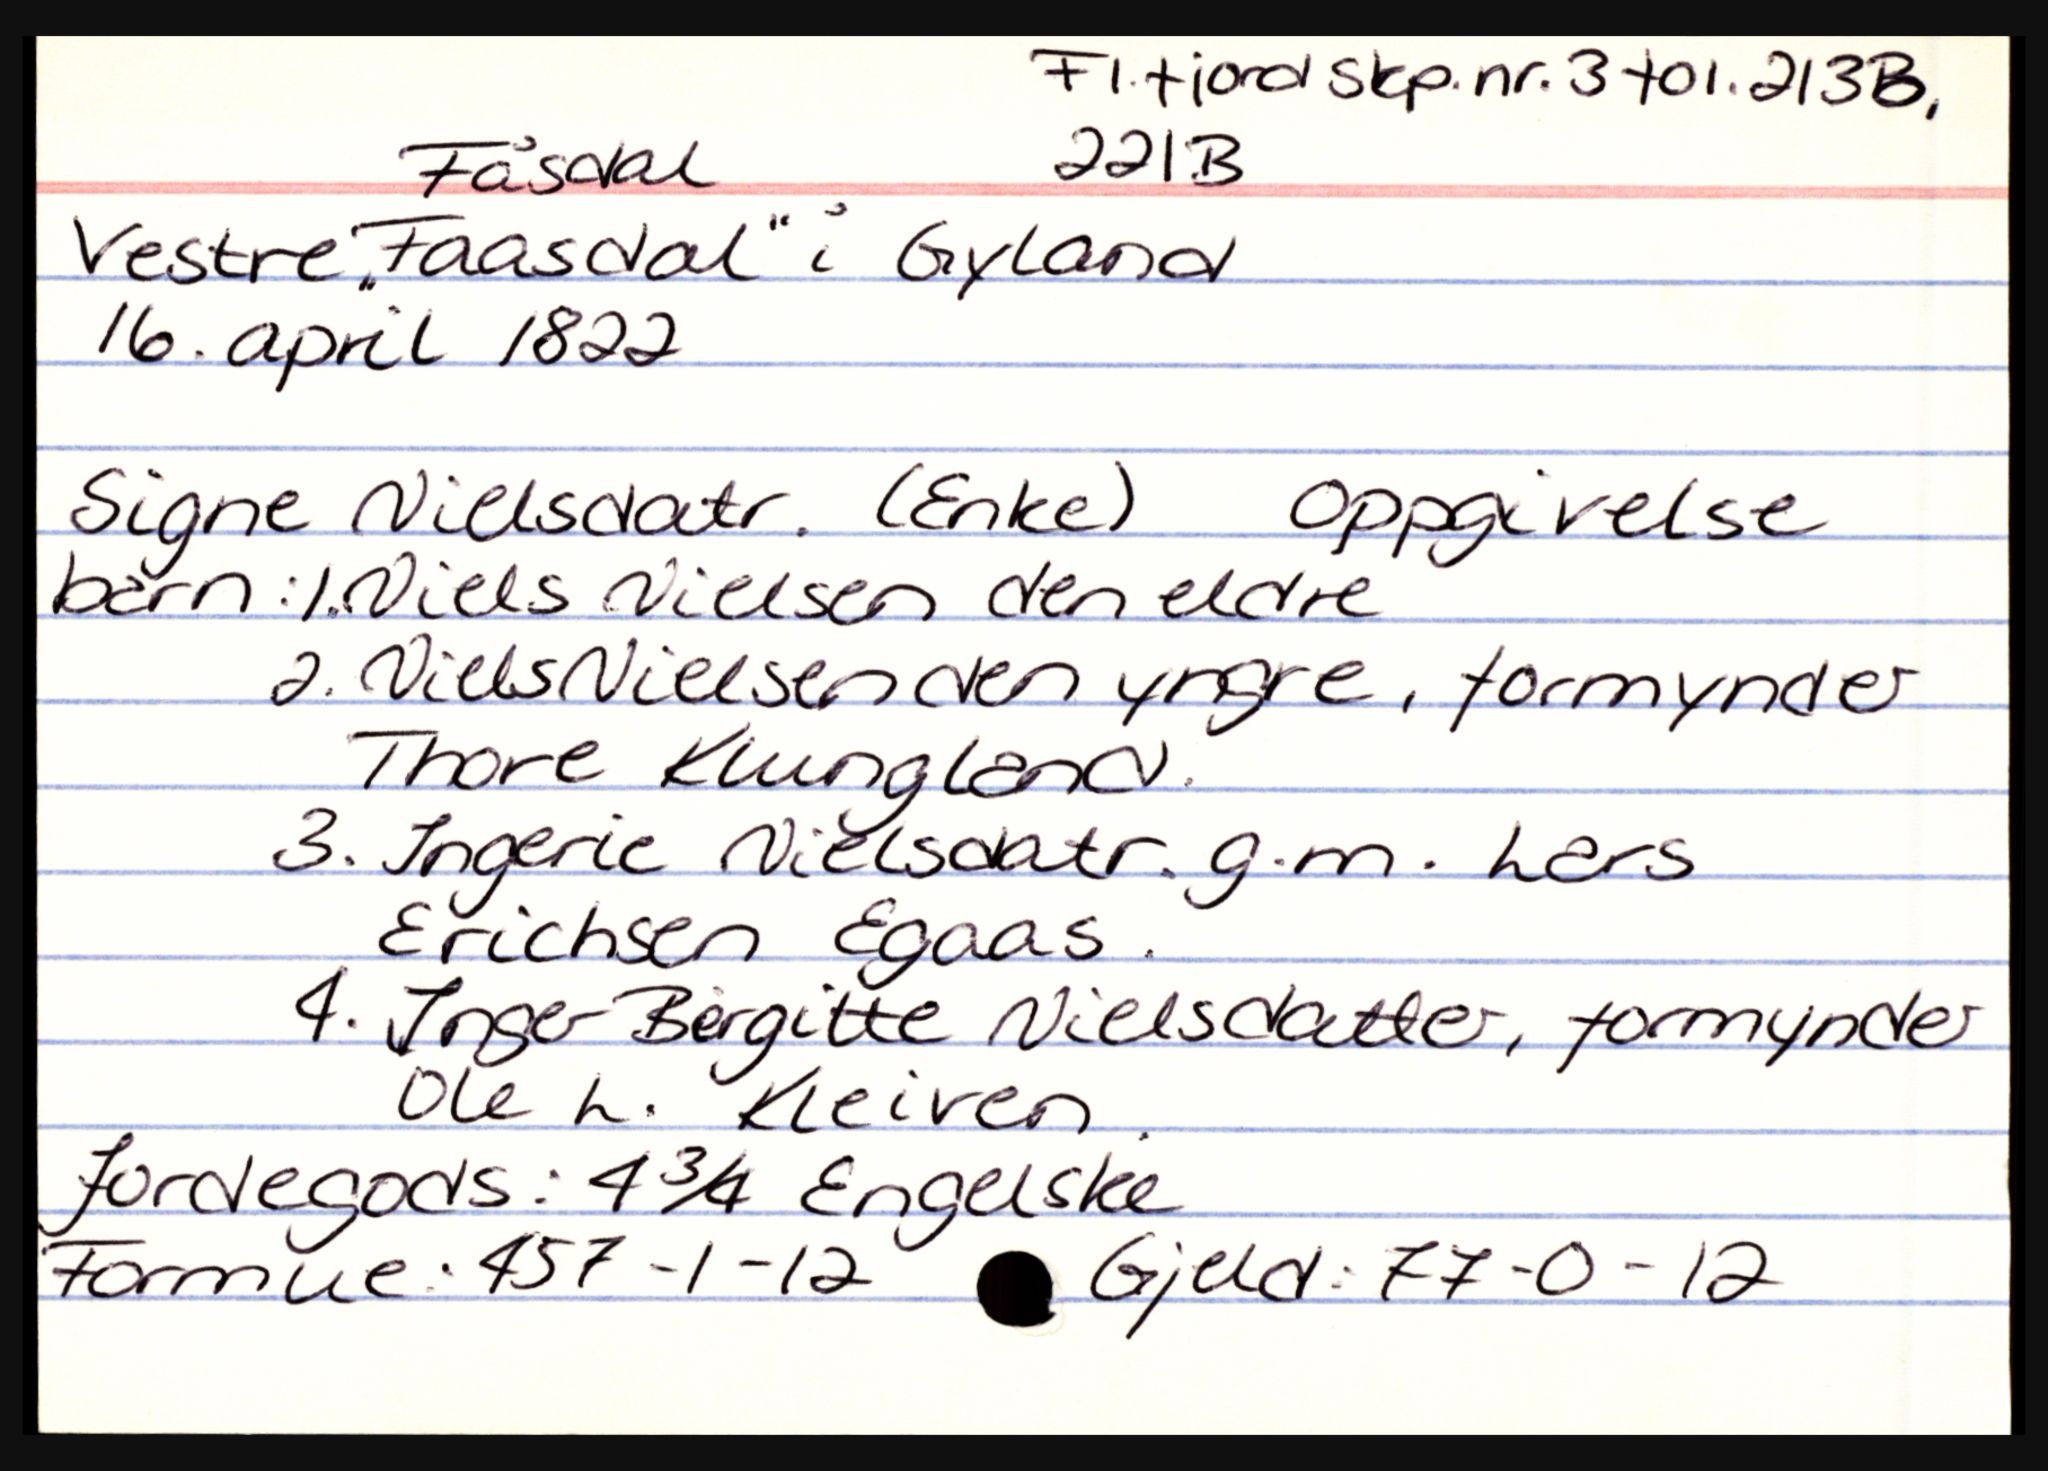 Fl.fjord skp.nr.3 fol.213B,
221B
Fåsdal
Vestre „Faasdal" i Gyland
16. april 1822
Signe Nielsdatr. (Enke) Oppgivelse
barn: 1. Niels Nielsen den eldre
2. Niels Nielsen den yngre, formynder
Thore Klungland.
3. Ingerie Nielsdatr. g.m. Lars
Erichsen Egaas.
4. Inger Birgitte Nielsdatter, formynder
Ole L. Kleiven.
Jordegods: 4 3/4 Engelske
Formue: 457-1-12 Gjeld: 77-0-12